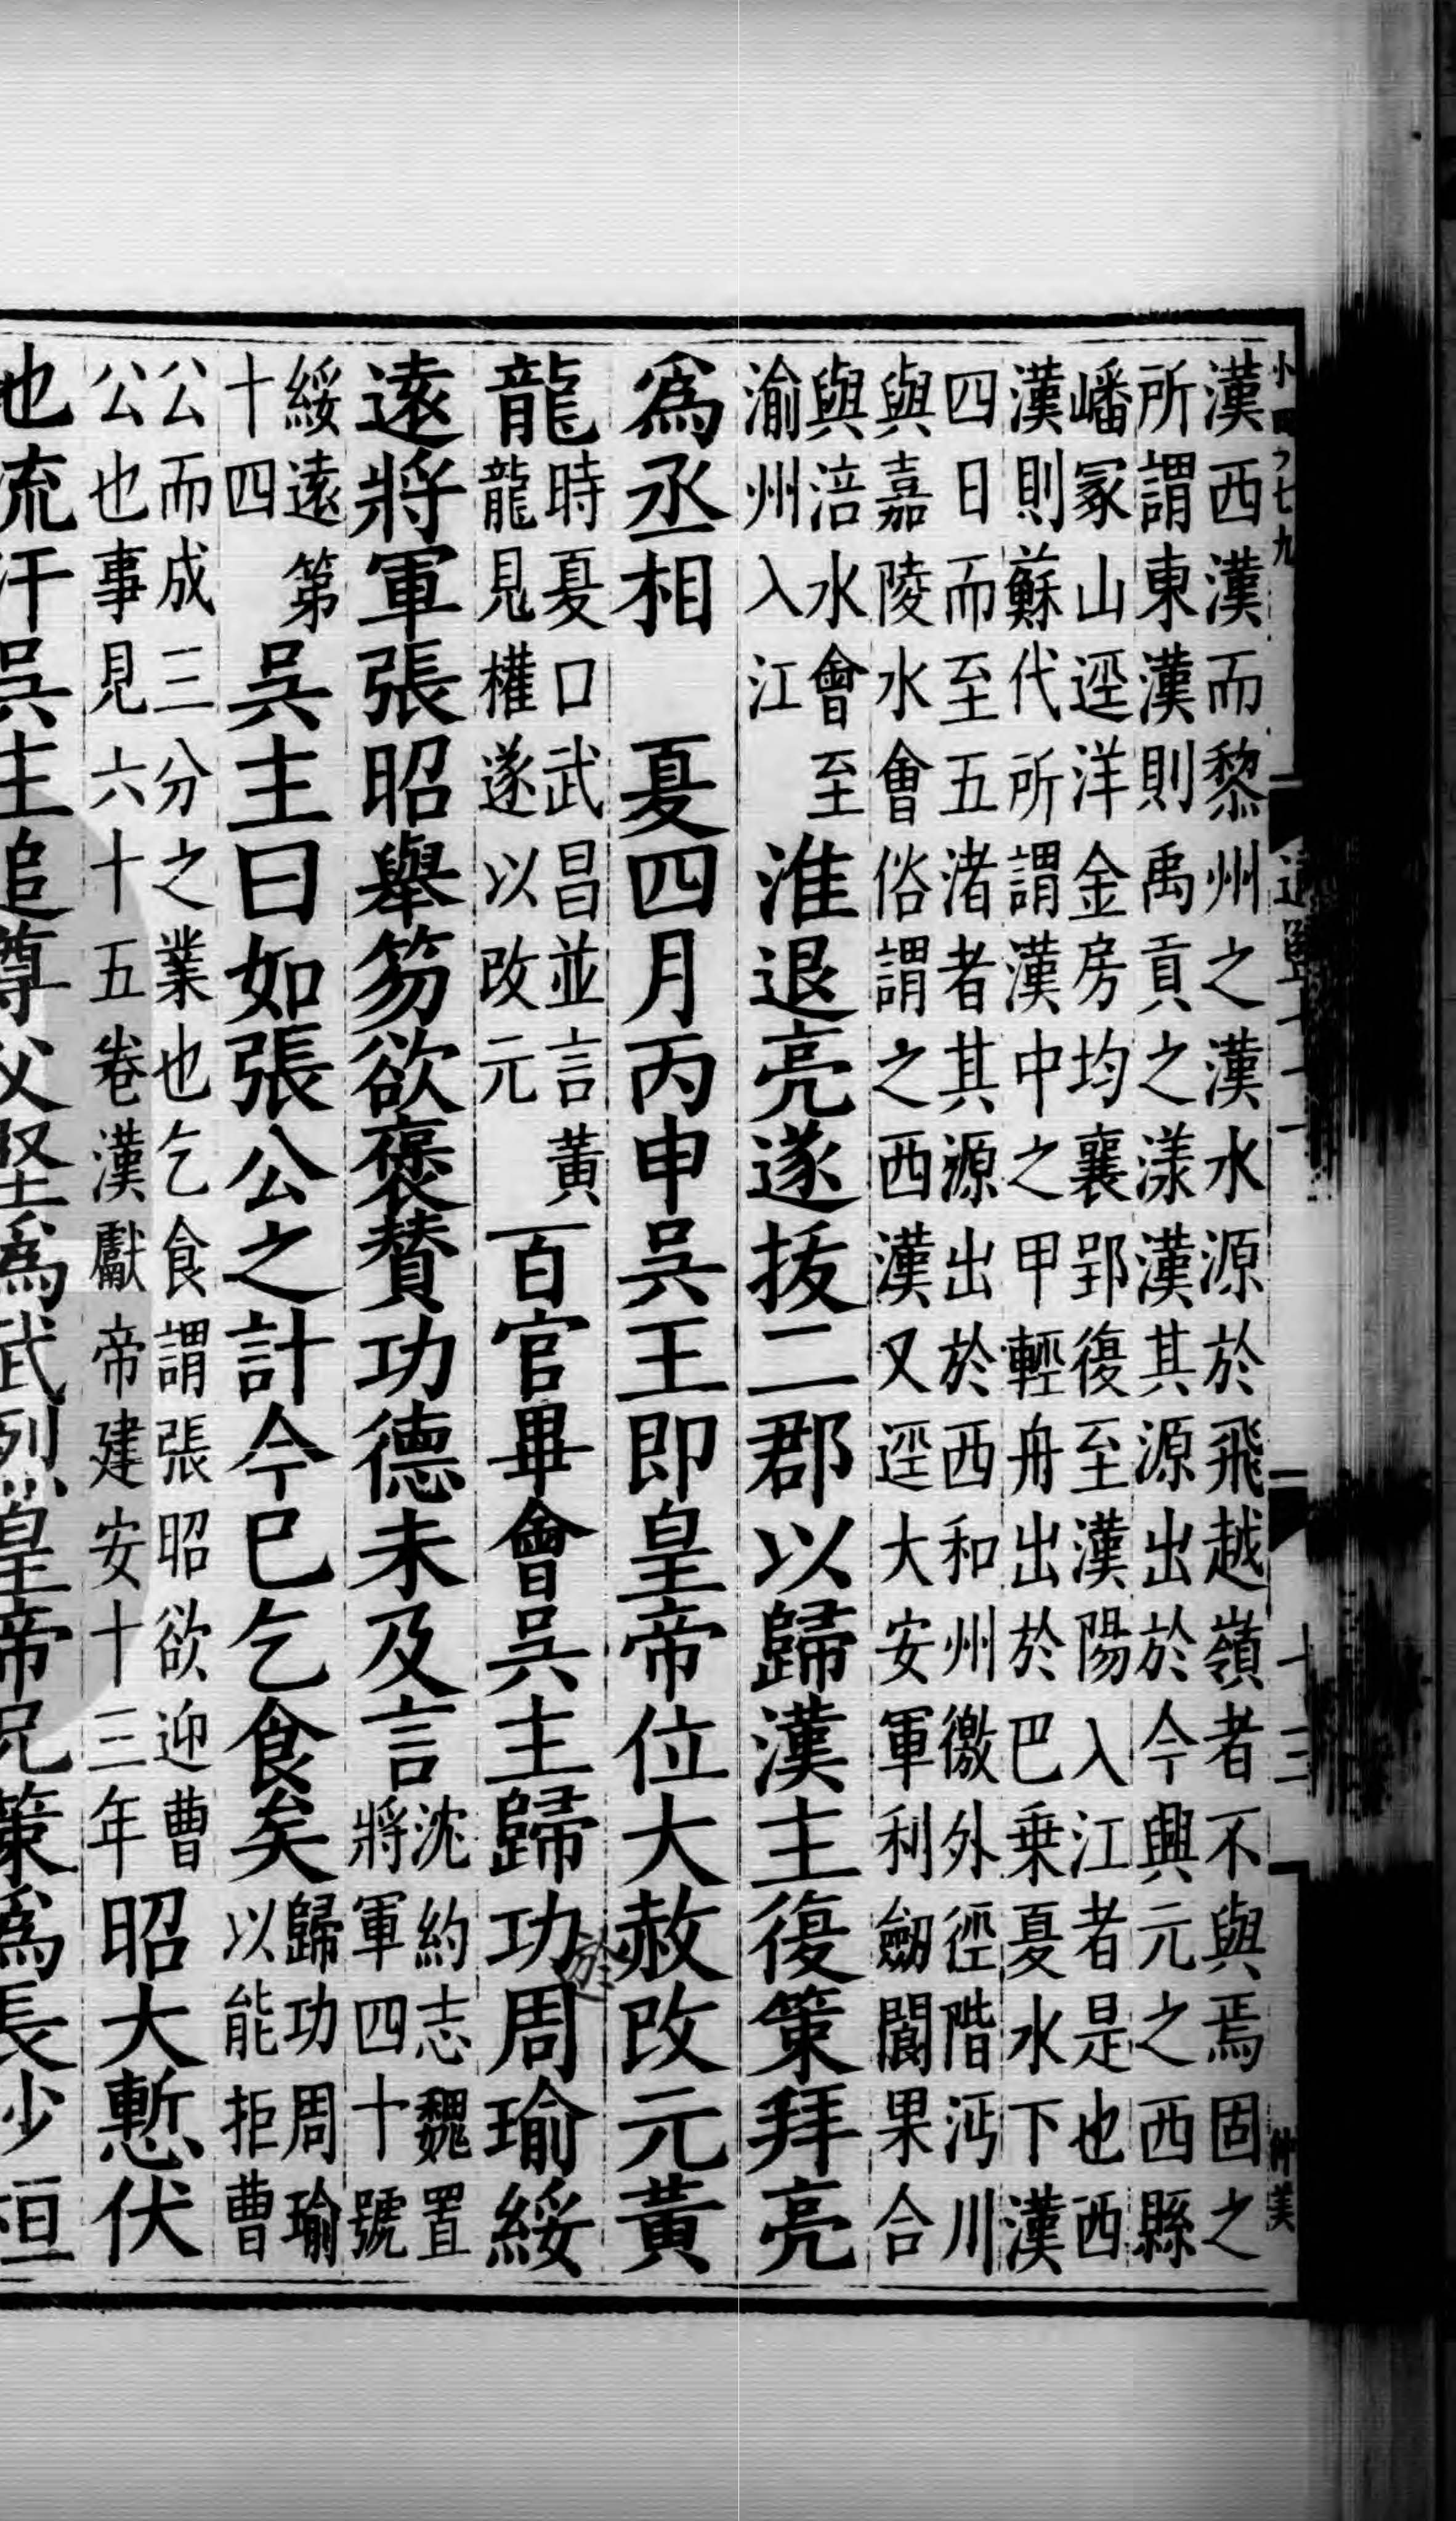 通鑑七十一
十三
漢西漢而黎州之漢水源於飛越嶺者不與焉固之
所謂東漢則禹貢之漾漢其源出於今興元之西縣
嶓冢山逕洋金房均襄郢復至漢陽入江者是也西
漢則蘇代所謂漢中之甲輕舟出於巴乗夏水下漢
四日而至五渚者其源出於西和州徼外徑階沔川
與嘉陵水會俗謂之西漢又逕大安軍利劒閬果合
與涪水會至
渝州入江
淮退亮遂拔二郡以歸漢主復策拜亮
爲丞相　夏四月丙申吳王即皇帝位大赦改元黃
龍時夏口武昌並言黃龍見權遂以改元百官畢會吳主歸功周瑜綏
遠將軍張昭舉笏欲褒贊功德未及言沈約志魏置將軍四十號
綏遠第十四吳主曰如張公之計今巳乞食矣歸功周瑜以能拒曹
公而成三分之業也乞食謂張昭欲迎曹公也事見六十五卷漢獻帝建安十三年昭大慙伏
流汗吳主追尊父堅爲武烈皇帝兄策爲長沙桓